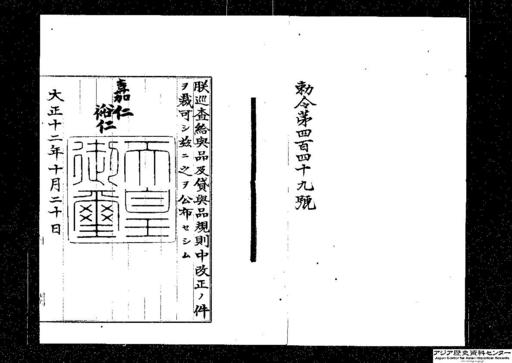 勅令第四百四十九號
朕巡査給與品及貸與品規則中改正ノ件
ヲ裁可シ茲ニ之ヲ公布セシム
嘉仁
裕仁
天皇
御璽
大正十二年十月二十日
アジア歴史資料センター
Japan Center for Asian Historical Records